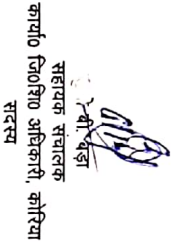 वी. पंडा
सहायक संचालक
कार्या0 जि0शि0 अधिकारी, कोरिया
सदस्य